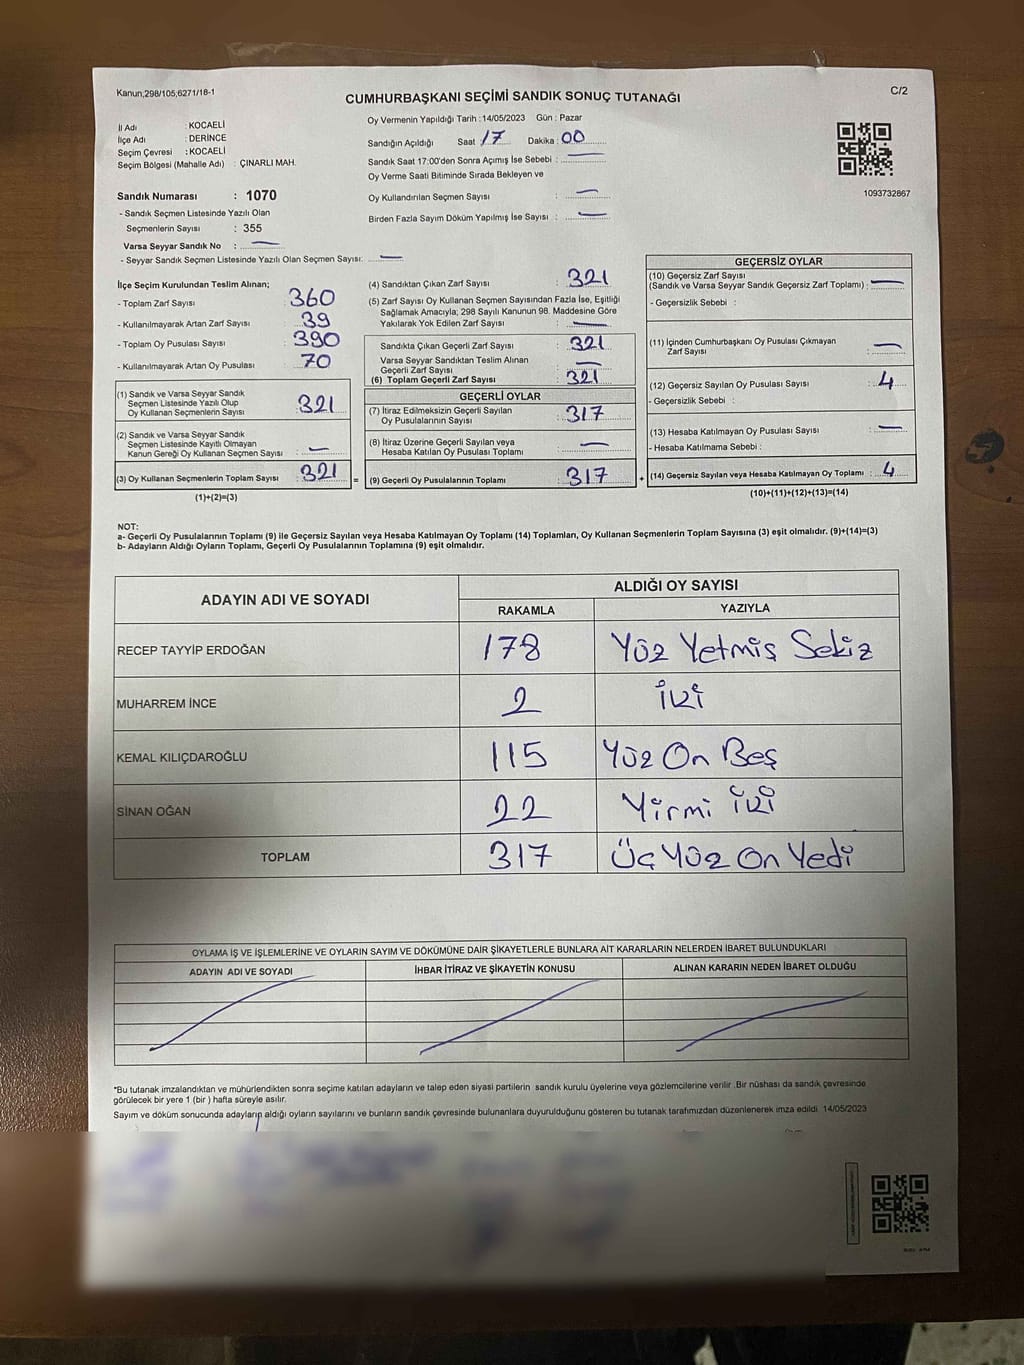 Kanun,298/105,6271/18-1
C/2
CUMHURBAŞKANI SEÇİMİ SANDIK SONUÇ TUTANAĞI
İl Adı : KOCAELİ
İlçe Adı : DERİNCE
Seçim Çevresi : KOCAELİ
Seçim Bölgesi (Mahalle Adı) : ÇINARLI MAH.
Sandık Numarası : 1070
- Sandık Seçmen Listesinde Yazılı Olan
Seçmenlerin Sayısı : 355
Varsa Seyyar Sandık No : —
- Seyyar Sandık Seçmen Listesinde Yazılı Olan Seçmen Sayısı: —
Oy Vermenin Yapıldığı Tarih : 14/05/2023 Gün : Pazar
Sandığın Açıldığı Saat 17 Dakika : 00
Sandık Saat 17:00'den Sonra Açımış İse Sebebi : —
Oy Verme Saati Bitiminde Sırada Bekleyen ve
Oy Kullandırılan Seçmen Sayısı : —
Birden Fazla Sayım Döküm Yapılmış İse Sayısı : —
1093732867
İlçe Seçim Kurulundan Teslim Alınan;
- Toplam Zarf Sayısı : 360
- Kullanılmayarak Artan Zarf Sayısı : 39
- Toplam Oy Pusulası Sayısı : 390
- Kullanılmayarak Artan Oy Pusulası : 70
(1) Sandık ve Varsa Seyyar Sandık
Seçmen Listesinde Yazılı Olup
Oy Kullanan Seçmenlerin Sayısı : 321
(2) Sandık ve Varsa Seyyar Sandık
Seçmen Listesinde Kayıtlı Olmayan
Kanun Gereği Oy Kullanan Seçmen Sayısı : —
(3) Oy Kullanan Seçmenlerin Toplam Sayısı : 321
(1)+(2)=(3)
(4) Sandıktan Çıkan Zarf Sayısı : 321
(5) Zarf Sayısı Oy Kullanan Seçmen Sayısından Fazla İse, Eşitliği
Sağlamak Amacıyla; 298 Sayılı Kanunun 98. Maddesine Göre
Yakılarak Yok Edilen Zarf Sayısı : —
Sandıkta Çıkan Geçerli Zarf Sayısı : 321
Varsa Seyyar Sandıktan Teslim Alınan
Geçerli Zarf Sayısı : —
(6) Toplam Geçerli Zarf Sayısı : 321
GEÇERLİ OYLAR
(7) İtiraz Edilmeksizin Geçerli Sayılan
Oy Pusulalarının Sayısı : 317
(8) İtiraz Üzerine Geçerli Sayılan veya
Hesaba Katılan Oy Pusulası Toplamı : —
= (9) Geçerli Oy Pusulalarının Toplamı : 317 +
GEÇERSİZ OYLAR
(10) Geçersiz Zarf Sayısı
(Sandık ve Varsa Seyyar Sandık Geçersiz Zarf Toplamı) : —
- Geçersizlik Sebebi :
(11) İçinden Cumhurbaşkanı Oy Pusulası Çıkmayan
Zarf Sayısı : —
(12) Geçersiz Sayılan Oy Pusulası Sayısı : 4
- Geçersizlik Sebebi :
(13) Hesaba Katılmayan Oy Pusulası Sayısı : —
- Hesaba Katılmama Sebebi :
(14) Geçersiz Sayılan veya Hesaba Katılmayan Oy Toplamı : 4
(10)+(11)+(12)+(13)=(14)
NOT:
a- Geçerli Oy Pusulalarının Toplamı (9) ile Geçersiz Sayılan veya Hesaba Katılmayan Oy Toplamı (14) Toplamları, Oy Kullanan Seçmenlerin Toplam Sayısına (3) eşit olmalıdır. (9)+(14)=(3)
b- Adayların Aldığı Oyların Toplamı, Geçerli Oy Pusulalarının Toplamına (9) eşit olmalıdır.
ADAYIN ADI VE SOYADI ALDIĞI OY SAYISI
RAKAMLA YAZIYLA
RECEP TAYYİP ERDOĞAN 178 Yüz Yetmiş Sekiz
MUHARREM İNCE 2 İki
KEMAL KILIÇDAROĞLU 115 Yüz On Beş
SİNAN OĞAN 22 Yirmi İki
TOPLAM 317 Üç Yüz On Yedi
OYLAMA İŞ VE İŞLEMLERİNE VE OYLARIN SAYIM VE DÖKÜMÜNE DAİR ŞİKAYETLERLE BUNLARA AİT KARARLARIN NELERDEN İBARET BULUNDUKLARI
ADAYIN ADI VE SOYADI İHBAR İTİRAZ VE ŞİKAYETİN KONUSU ALINAN KARARIN NEDEN İBARET OLDUĞU
*Bu tutanak imzalandıktan ve mühürlendikten sonra seçime katılan adayların ve talep eden siyasi partilerin sandık kurulu üyelerine veya gözlemcilerine verilir .Bir nüshası da sandık çevresinde
görülecek bir yere 1 (bir ) hafta süreyle asılır.
Sayım ve döküm sonucunda adayların aldığı oyların sayılarını ve bunların sandık çevresinde bulunanlara duyurulduğunu gösteren bu tutanak tarafımızdan düzenlenerek imza edildi. 14/05/2023